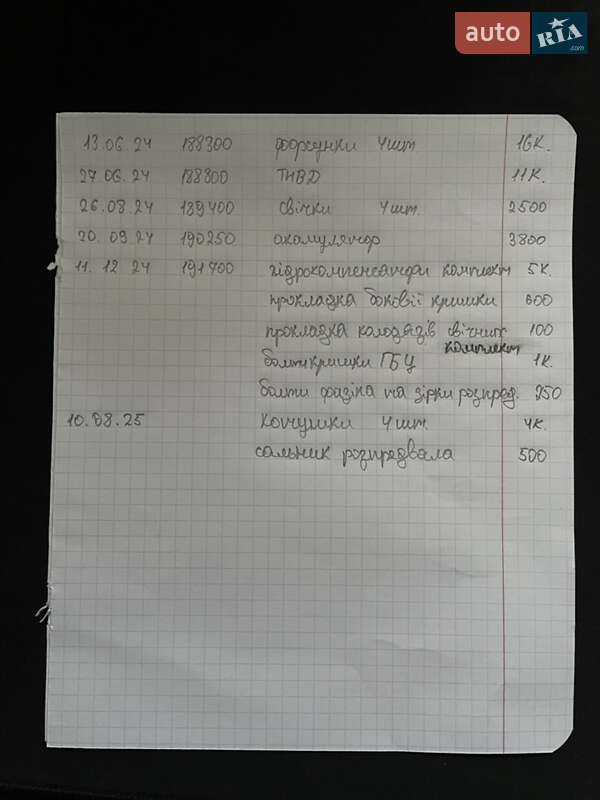 auto RIA .com
13.06.24 188300 форсунки 4шт 16к.
27 06.24 188800 ТНВД 11к.
26.08.24 189400 свічки 4шт. 2500
20.09.24 190250 акамулятор 3800
11.12 24 191700 гідрокомпенсатори комплект 5к.
прокладка бокової кришки 600
прокладка колодязів свічних 100
комплект
болти кришки ГБЦ 1к.
болти фазіка та зірки розпред. 250
10.08.25 Ковчуки 4шт. 4к.
сальник розпредвала 500